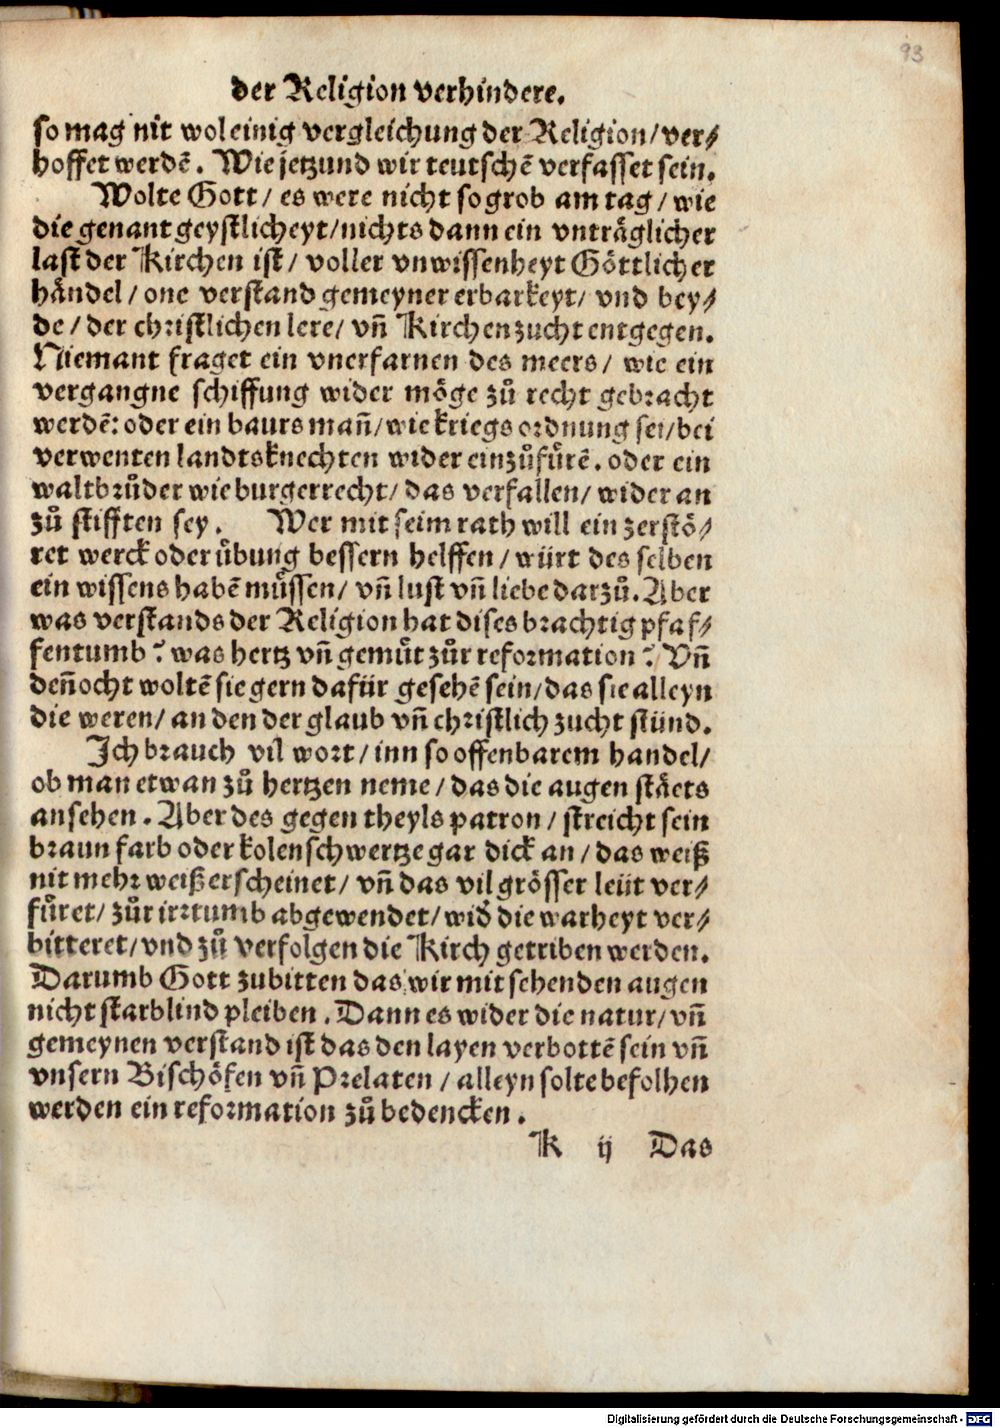 93
der Religion verhindere.
so mag nit wol einig vergleichung der Religion/ ver⸗
hoffet werdē. Wie jetzund wir teutschē verfasset sein.
Wolte Gott/ es were nicht so grob am tag/ wie
die genant geystlicheyt/ nichts dann ein vnträglicher
last der Kirchen ist/ voller vnwissenheyt Göttlicher
händel/ one verstand gemeyner erbarkeyt/ vnd bey⸗
de/ der christlichen lere/ vn̄ Kirchenzucht entgegen.
Niemant fraget ein vnerfarnen des meers/ wie ein
vergangne schiffung wider möge zů recht gebracht
werdē: oder ein baurs man̄/ wie kriegs ordnung sei/ bei
verwenten landtsknechten wider einzůfürē. oder ein
waltbrůder wie burgerrecht/ das verfallen/ wider an
zů stifften sey. Wer mit seim rath will ein zerstö⸗
ret werck oder übung bessern helffen/ würt des selben
ein wissens habē müssen/ vn̄ lust vn̄ liebe darzů. Aber
was verstands der Religion hat dises brachtig pfaf⸗
fentumb? was hertz vn̄ gemüt zůr reformation? Vn̄
den̄ocht woltē sie gern dafür gesehē sein/ das sie alleyn
die weren/ an den der glaub vn̄ christlich zucht stünd.
Ich brauch vil wort/ inn so offenbarem handel/
ob man etwan zů hertzen neme/ das die augen stäets
ansehen. Aber des gegen theyls patron/ streicht sein
braun farb oder kolenschwertze gar dick an/ das weiß
nit mehr weiß erscheinet/ vn̄ das vil grösser leüt ver⸗
füret/ zůr irrtumb abgewendet/ wid̕ die warheyt ver⸗
bitteret/ vnd zů verfolgen die Kirch getriben werden.
Darumb Gott zubitten das wir mit sehenden augen
nicht starblind pleiben. Dann es wider die natur/ vn̄
gemeynen verstand ist das den layen verbottē sein vn̄
vnsern Bischöfen vn̄ Prelaten/ alleyn solte befolhen
werden ein reformation zů bedencken.
K ij Das
Digitalisierung gefördert durch die Deutsche Forschungsgemeinschaft - DFG